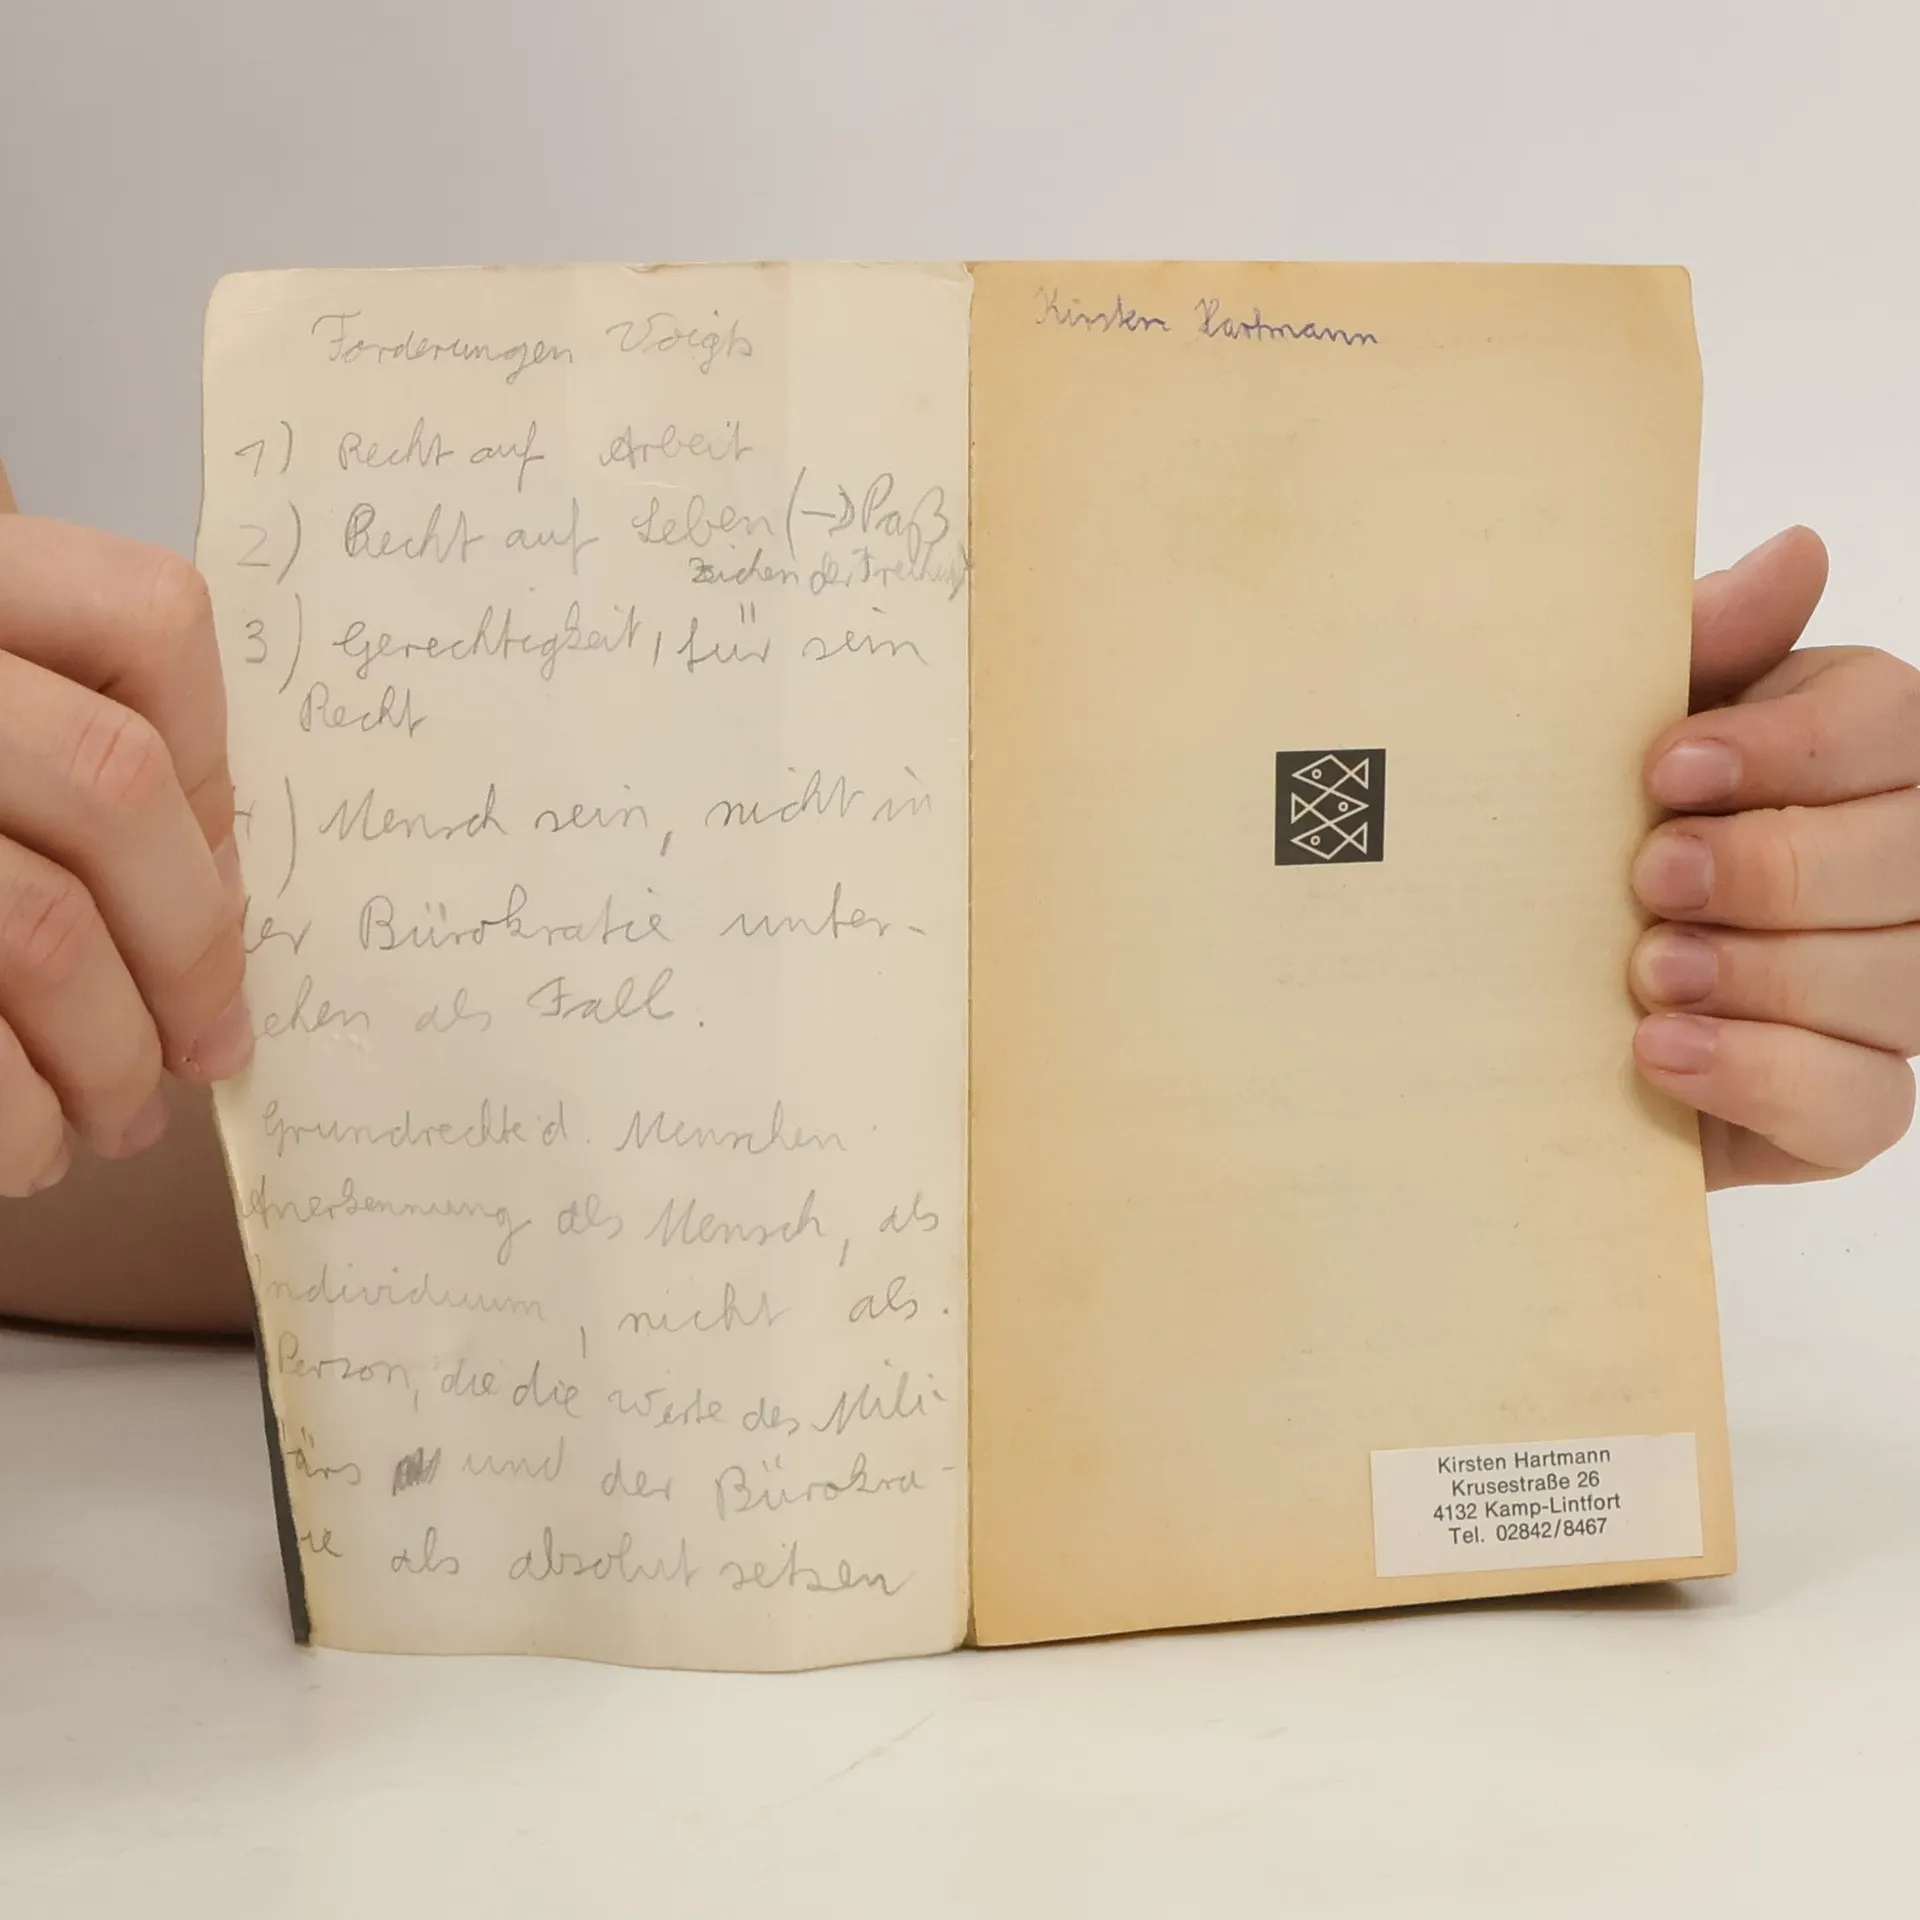 Forderungen Voigts
1) Recht auf Arbeit
2) Recht auf Leben (→ Paß
Zeichen der Freiheit)
3) Gerechtigkeit, für sein
Recht
) Mensch sein, nicht in
der Bürokratie unter-
ehen als Fall.
Grundrechte d. Menschen
Anerkennung als Mensch, als
Individuum, nicht als
Person, die die Werte des Mili-
ärs und der Bürokra-
ie als absolut setzen
Kirsten Hartmann
Kirsten Hartmann
Krusestraße 26
4132 Kamp-Lintfort
Tel. 02842/8467